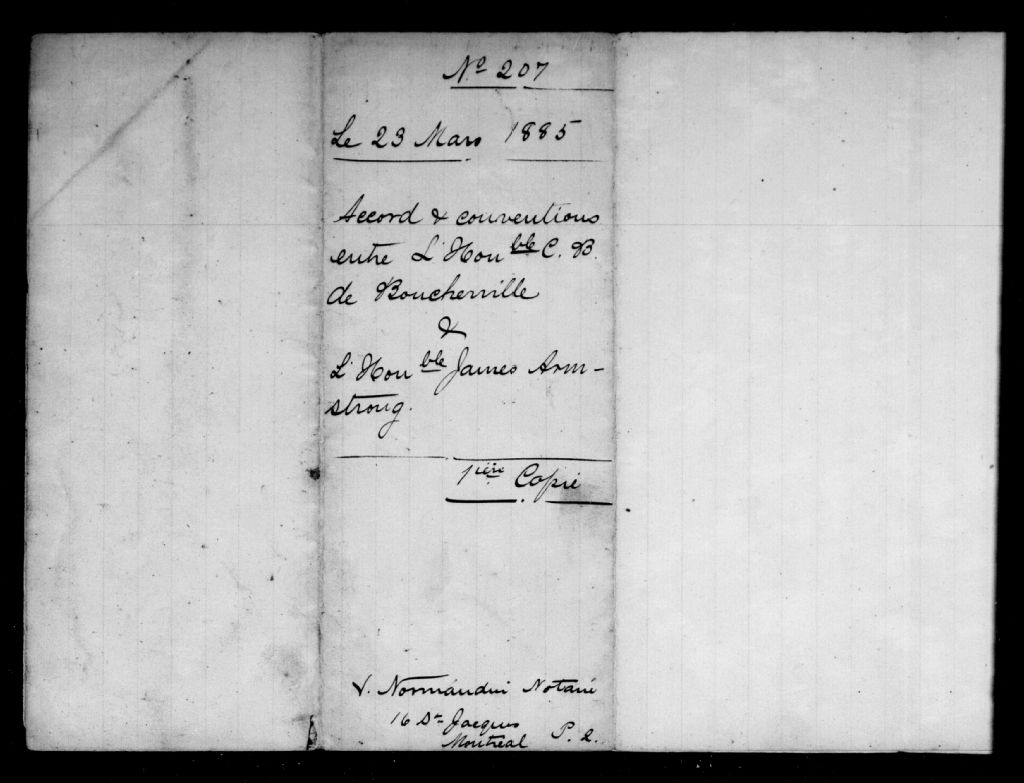 No 207
Le 23 Mars 1885
Accord & conventions
entre L'Honble C. B.
de Boucherville
&
L'Honble James Arm-
strong.
1ière Copie
Normandin Notaire
16 St Jacques
Montréal P. Q.